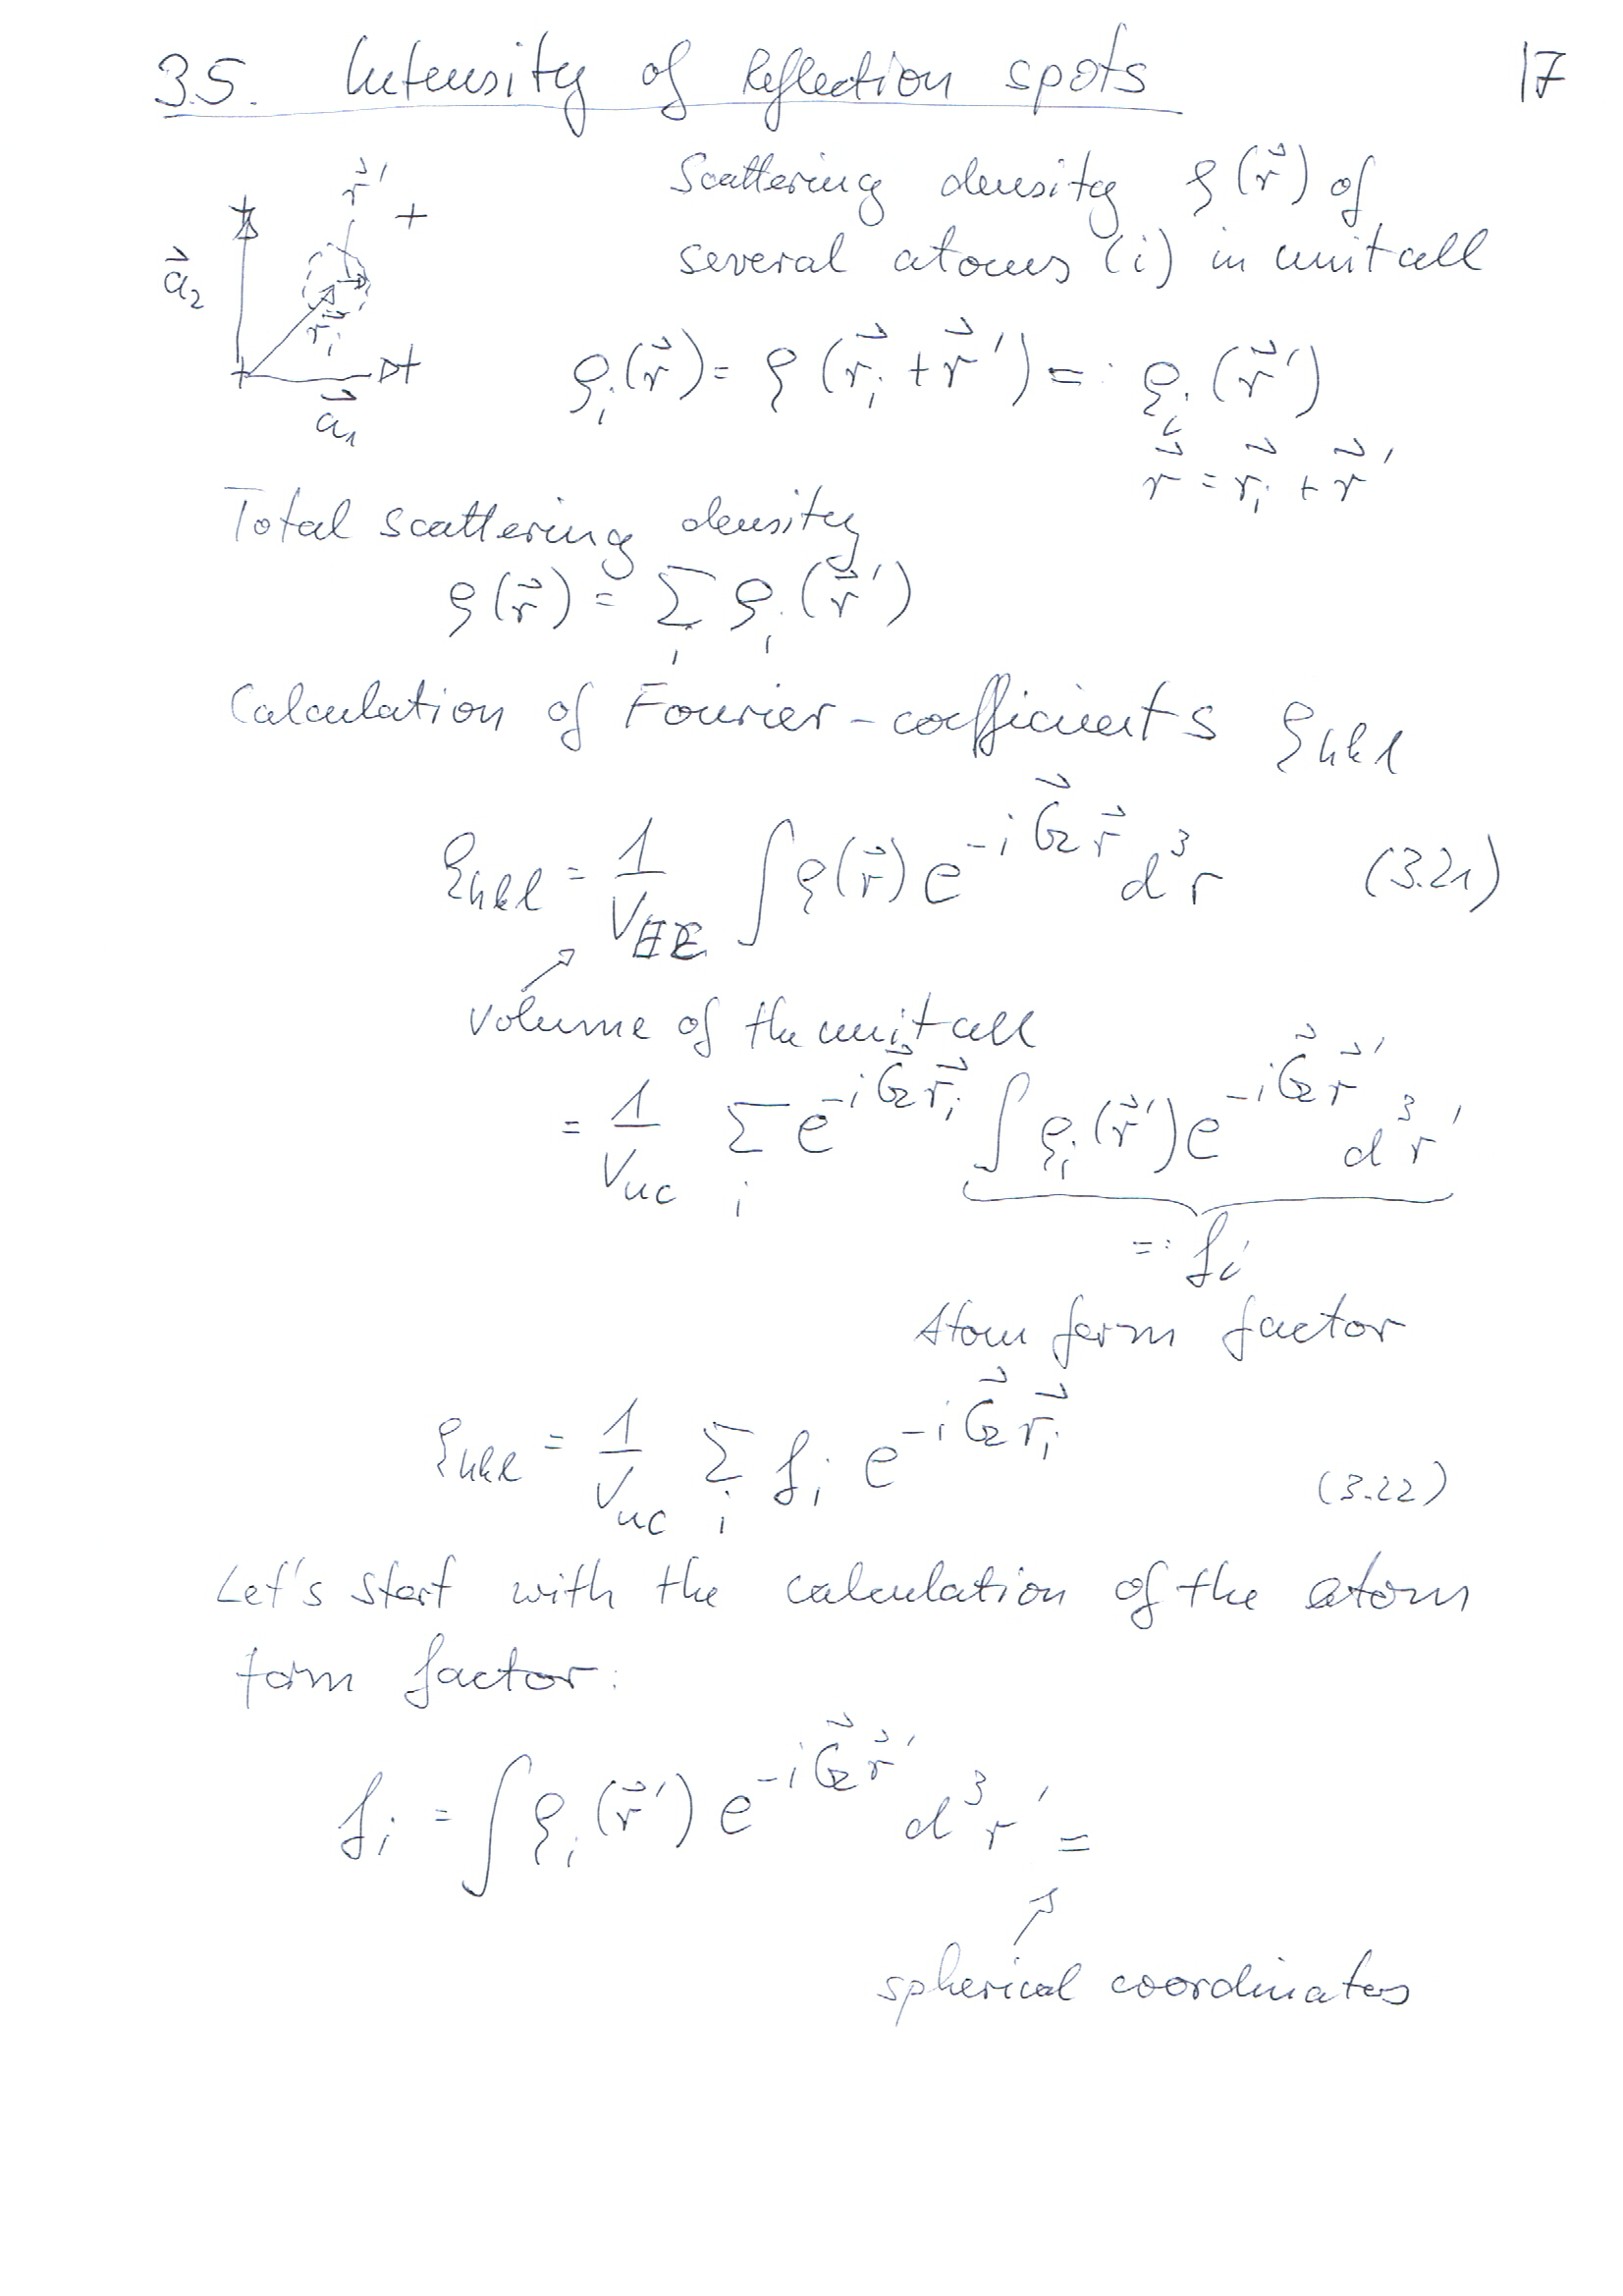 3.5. Intensity of Reflection spots 17
r⃗ ′
+
a⃗₂
r⃗ᵢ
a⃗₁
Scattering density ρ(r⃗) of
several atoms (i) in unit cell
ρᵢ(r⃗) = ρ(r⃗ᵢ + r⃗ ′) =: ρᵢ(r⃗ ′)
r⃗ = r⃗ᵢ + r⃗ ′
Total scattering density
ρ(r⃗) = Σᵢ ρᵢ(r⃗ ′)
Calculation of Fourier-coefficients ρ_hkl
ρ_hkl = 1/V ∫ρ(r⃗) e^{-i G⃗ r⃗} d³r (3.21)
volume of the unit cell
= 1/V_uc Σᵢ e^{-i G⃗ r⃗ᵢ} ∫ρᵢ(r⃗ ′) e^{-i G⃗ r⃗ ′} d³r′
=: fᵢ
Atom form factor
ρ_hkl = 1/V_uc Σᵢ fᵢ e^{-i G⃗ r⃗ᵢ} (3.22)
Let's start with the calculation of the atom
form factor:
fᵢ = ∫ρᵢ(r⃗ ′) e^{-i G⃗ r⃗ ′} d³r′ =
spherical coordinates